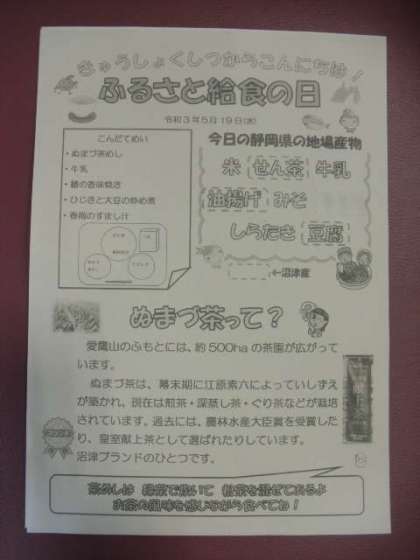 きゅうしょくしつからこんにちは！
ふるさと給食の日
令和３年５月１９日(水)
こんだてめい
・ぬまづ茶めし
・牛乳
・鯖の香味焼き
・ひじきと大豆の炒め煮
・春雨のすまし汁
今日の静岡県の地場産物
米 せん茶 牛乳
油揚げ みそ
しらたき 豆腐
←沼津産
ぬまづ茶って？
愛鷹山のふもとには、約５００haの茶園が広がって
います。
ぬまづ茶は、幕末期に江原素六によっていしずえ
が築かれ、現在は煎茶・深蒸し茶・ぐり茶などが栽培
されています。過去には、農林水産大臣賞を受賞した
り、皇室献上茶として選ばれたりしています。
沼津ブランドのひとつです。
茶めしは 緑茶で炊いて 粉茶を混ぜてあるよ
お茶の風味を感じながら食べてね！